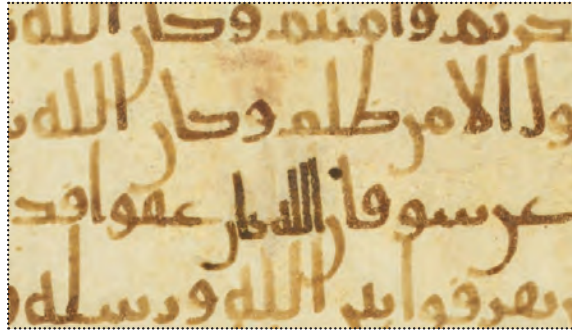 كرتم وامنتم وكان الله
ول الا من ظلم وكان الله
عن سو فان الله كان عفوا قد
يفرقوا بين الله ورسله و